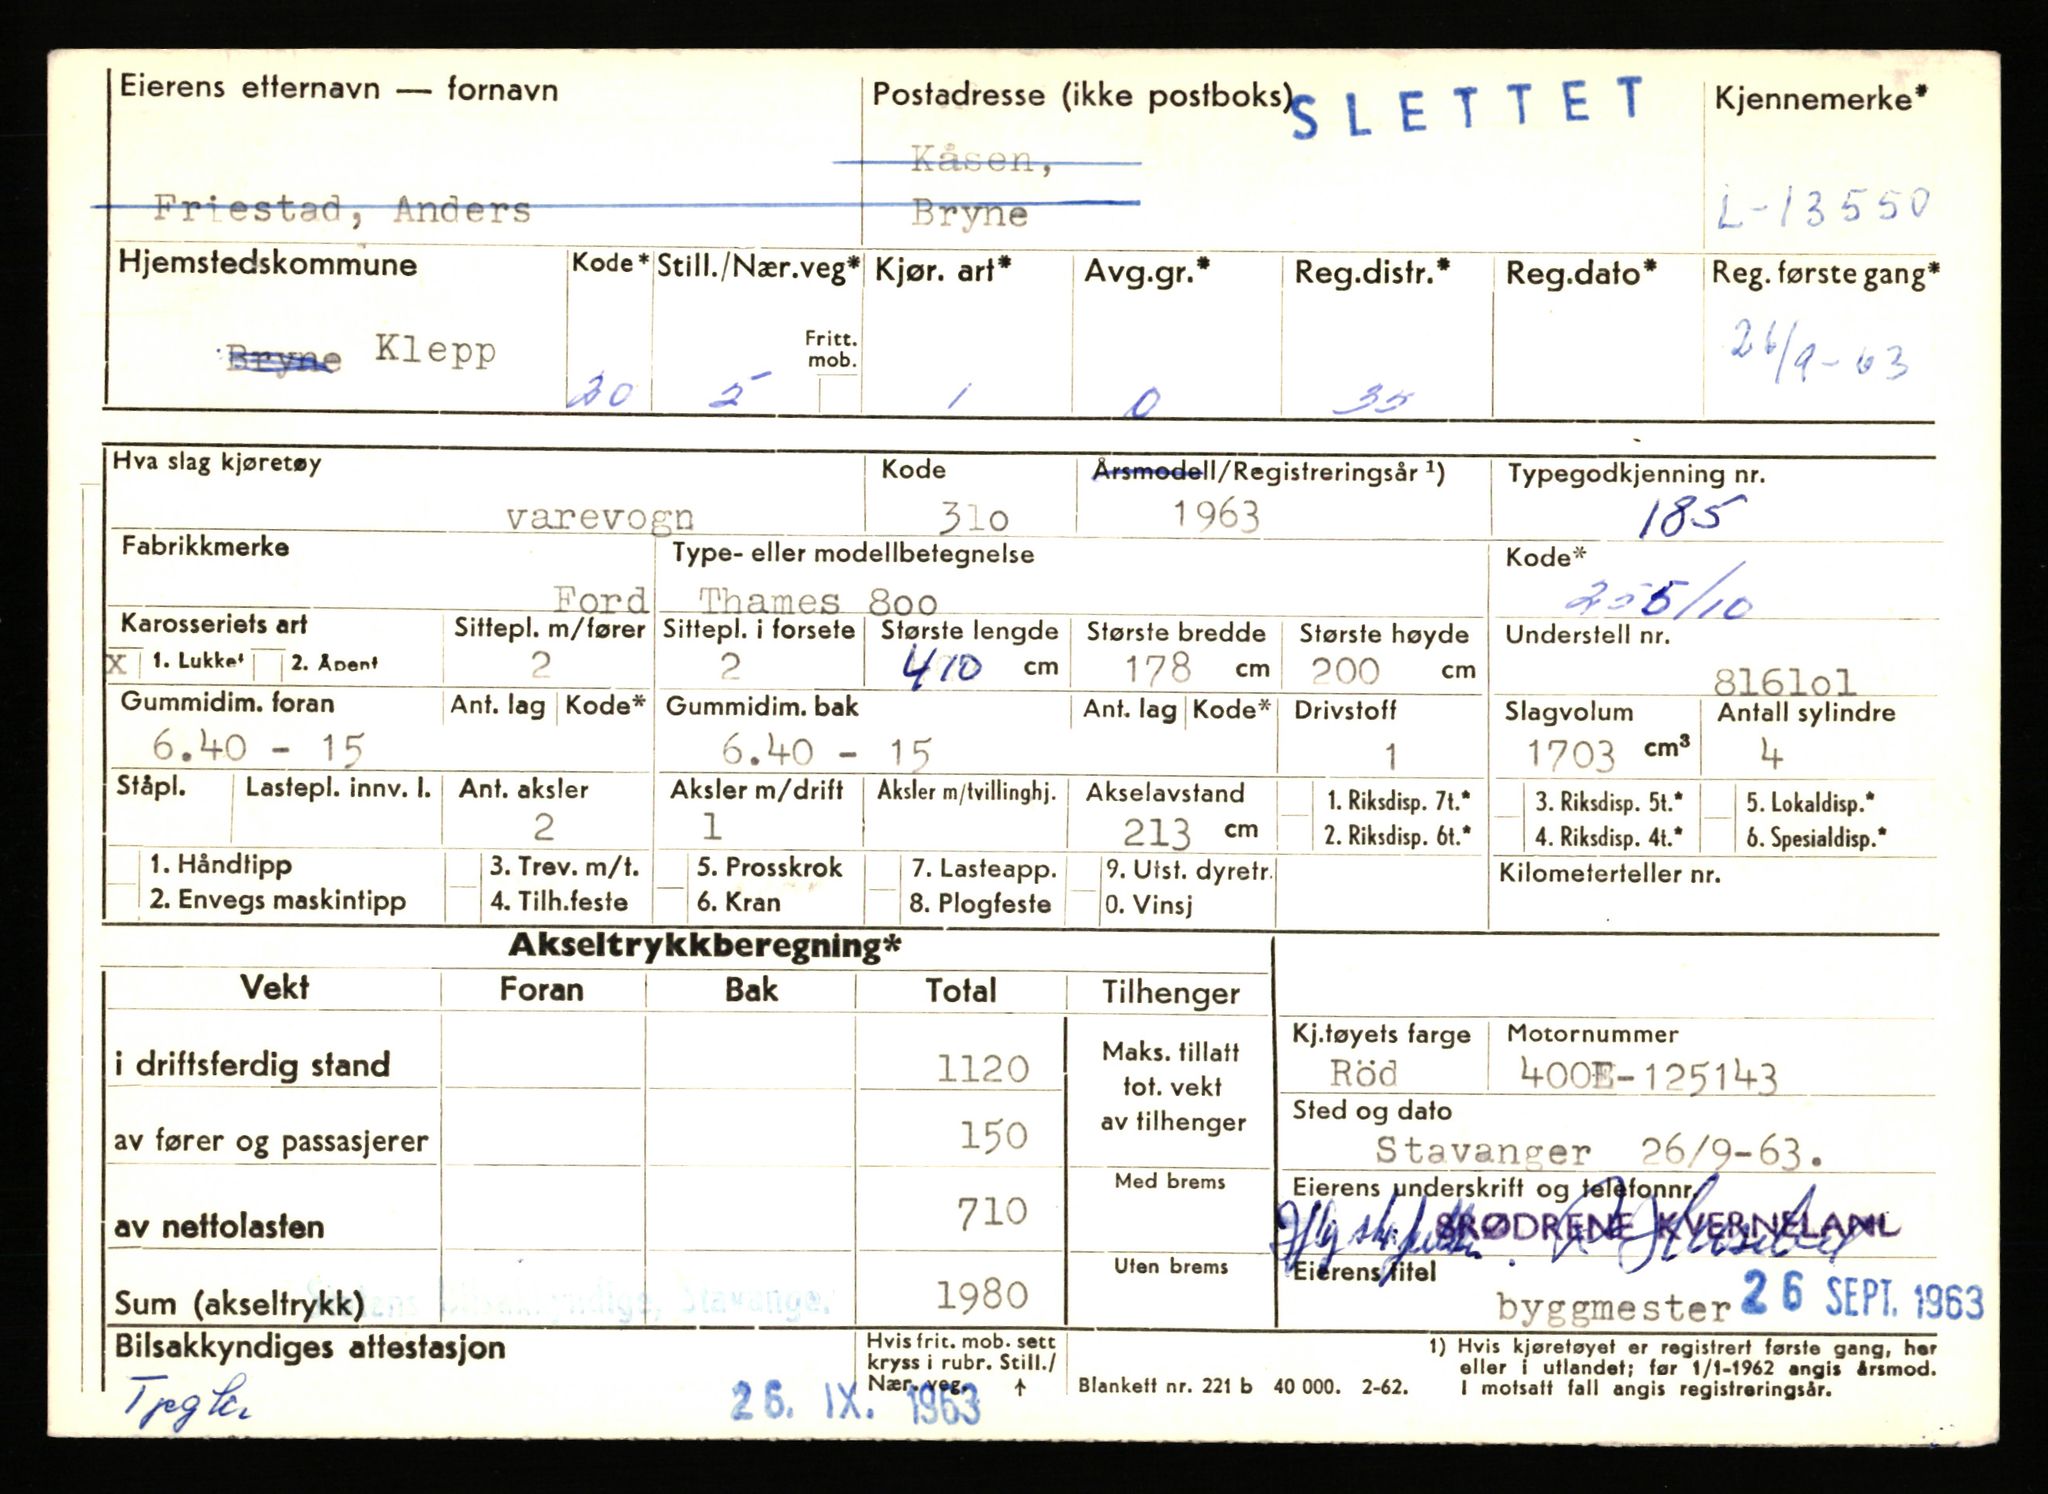 Eierens etternavn — fornavn
Postadresse (ikke postboks)
SLETTET
Kjennemerke*
Kåsen,
Friestad, Anders
Bryne
L-13550
Hjemstedskommune
Kode*
Still./Nær.veg*
Kjør. art*
Avg.gr.*
Reg.distr.*
Reg.dato*
Reg. første gang*
Bryne Klepp
Fritt. mob.
20
5
1
0
35
26/9-63
Hva slag kjøretøy
Kode
Årsmodell/Registreringsår ¹)
Typegodkjenning nr.
varevogn
31o
1963
185
Fabrikkmerke
Type- eller modellbetegnelse
Kode*
Ford
Thames 8oo
255/10
Karosseriets art
Sittepl. m/fører
Sittepl. i forsete
Største lengde
Største bredde
Største høyde
Understell nr.
X 1. Lukket 2. Åpent
2
2
410 cm
178 cm
200 cm
8161o1
Gummidim. foran
Ant. lag
Kode*
Gummidim. bak
Ant. lag
Kode*
Drivstoff
Slagvolum
Antall sylindre
6.40 - 15
6.40 - 15
1
1703 cm³
4
Ståpl.
Lastepl. innv. l.
Ant. aksler
Aksler m/drift
Aksler m/tvillinghj.
Akselavstand
1. Riksdisp. 7t.*
3. Riksdisp. 5t.*
5. Lokaldisp.*
2
1
213 cm
2. Riksdisp. 6t.*
4. Riksdisp. 4t.*
6. Spesialdisp.*
1. Håndtipp
3. Trev. m/t.
5. Prosskrok
7. Lasteapp.
9. Utst. dyretr.
Kilometerteller nr.
2. Envegs maskintipp
4. Tilh.feste
6. Kran
8. Plogfeste
0. Vinsj
Akseltrykkberegning*
Vekt
Foran
Bak
Total
Tilhenger
i driftsferdig stand
1120
Maks. tillatt
tot. vekt
av tilhenger
Kj.tøyets farge
Motornummer
Röd
400E-125143
av fører og passasjerer
150
Sted og dato
Stavanger 26/9-63.
Med brems
av nettolasten
710
Eierens underskrift og telefonnr.
BRØDRENE KVERNELAND
Uten brems
Eierens titel
Sum (akseltrykk)
Statens Bilsakkyndige, Stavanger.
1980
byggmester
26 SEPT. 1963
Bilsakkyndiges attestasjon
Hvis frit. mob. sett
kryss i rubr. Still./
Nær. veg. ↑
26. IX. 1963
Blankett nr. 221 b 40 000. 2-62.
1) Hvis kjøretøyet er registrert første gang, her
eller i utlandet; før 1/1-1962 angis årsmod.
I motsatt fall angis registreringsår.